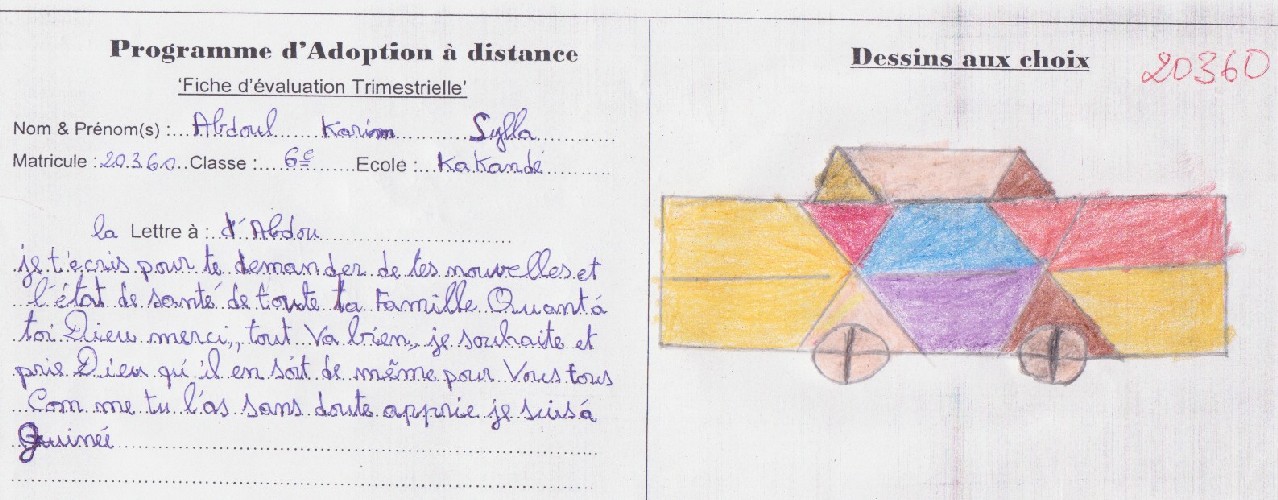 Programme d'Adoption à distance
'Fiche d'évaluation Trimestrielle'
Nom & Prénom(s) :...Abdoul Karim Sylla
Matricule :20.360..Classe :....6e........Ecole : KaKandé
la Lettre à : d'Abdou
je t'ecris pour te demander de tes nouvelles et
l'état de santé de toute ta Famille Quant à
toi Dieu merci,, tout Va bien, je souhaite et
prie Dieu qu'il en soit de même pour Vous tous
Com me tu l'as sans doute apprie je suis à
Guinée
Dessins aux choix
20360